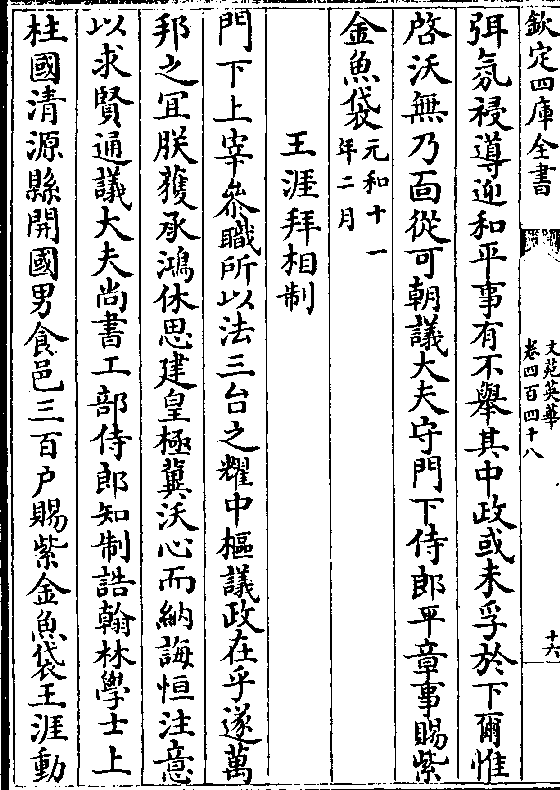 欽定四庫全書
文苑英華
卷四百四十八
十六
弭氛祲導迎和平事有不舉其中政或未孚於下爾惟
啓沃無乃面從可朝議大夫守門下侍郎平章事賜紫
金魚袋元和十一
年二月
王涯拜相制
門下上宰叅職所以法三台之耀中樞議政在乎遂萬
邦之宜朕獲承鴻休思建皇極冀沃心而納誨恒注意
以求賢通議大夫尚書工部侍郎知制誥翰林學士上
柱國清源縣開國男食邑三百户賜紫金魚袋王涯動